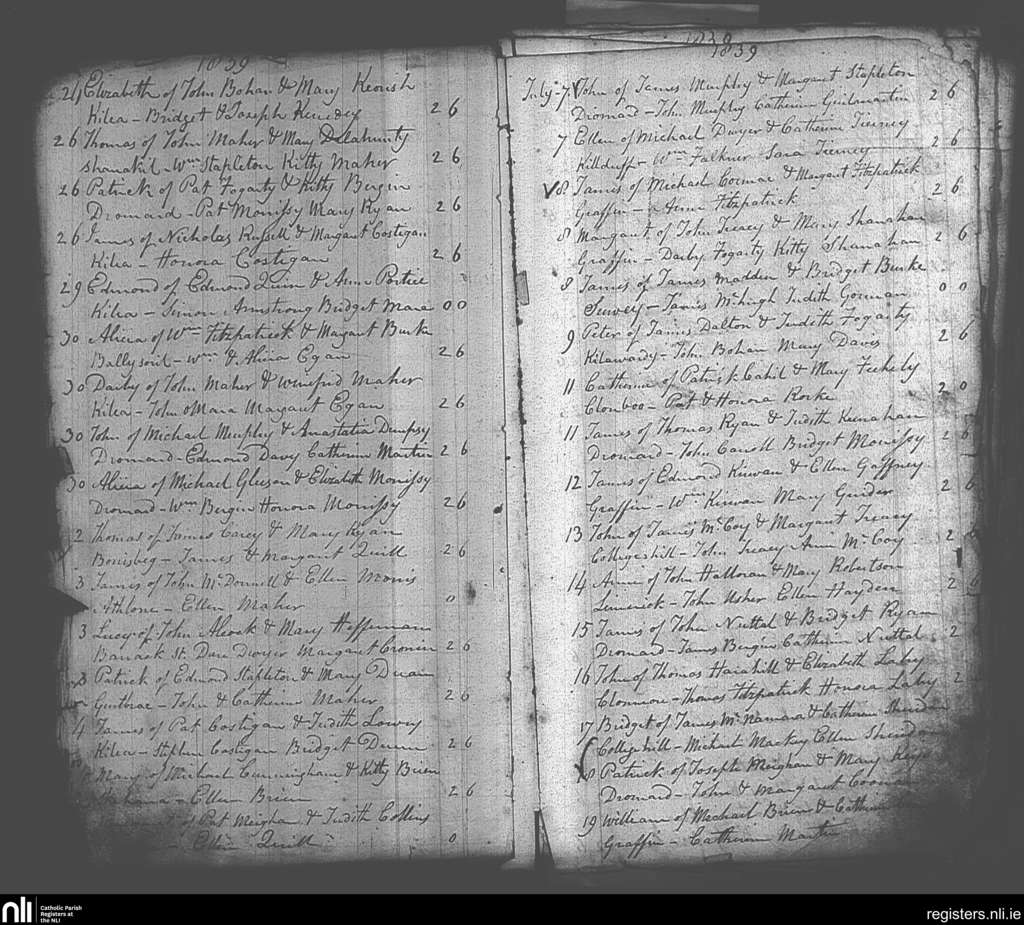 1839
24 Elizabeth of John Bohan & Mary Keorish
Kilea - Bridget & Joseph Kenedy 2 6
26 Thomas of John Maher & Mary Delahunty
Shanakil - Wm Stapleton Kitty Maher 2 6
26 Patrick of Pat Fogarty & Kitty Bergin
Dromard - Pat Morrissy Mary Ryan 2 6
26 James of Nicholas Russell & Margaret Costigan
Kilea - Honora Costigan 2 6
29 Edmond of Edmond Quin & Anne
Kilea - Simon Armstrong Bridget Mara 0 0
30 Alicia of Wm Fitzpatrick & Margaret Burke
Wm & Alicia Egan 2 6
30 Darby of John Maher & Winefrid Maher
Kilea - John OMara Margaret Egan 2 6
30 John of Michael Murphy & Anastatia Dempsy
Dromard - Edmond Davy Catherine Martin 2 6
30 Alicia of Michael Gleeson & Elizabeth Morrissy
Dromard - Wm Bergin Honora Morrissy 2 6
2 Thomas of James Carey & Mary Ryan
James & Margaret Quill 2 6
3 James of John McDonnell & Ellen Morris
Athlone - Ellen Maher 0
3 Lucy of John Alcock & Mary Heffernan
Barrack St. Dwyer Margaret Cronin 2 6
3 Patrick of Edmond Stapleton & Mary
John & Catherine Maher 2 6
4 James of Pat Costigan & Judith Lowry
Kilea - Stephen Costigan Bridget Dunn 2 6
Mary of Michael Cunningham & Kitty Brien
Ellen Brien 2 6
of Pat Meighan & Judith Collins
Ellen Quill 0
1839
1839
July - 7 John of James Murphy & Margaret Stapleton
Dromard - John Murphy Catherine 2 6
7 Ellen of Michael Dwyer & Catherine Tierney
Killduff - Wm Falkner Sara Tierney 2 6
8 James of Michael Cormac & Margaret Fitzpatrick
Graffin - Anne Fitzpatrick 2 6
8 Margaret of John Treacy & Mary Shanahan
Graffin - Darby Fogarty Kitty Shanahan 2 6
8 James of James Madden & Bridget Burke
James McHugh Judith Gorman 0 0
9 Peter of James Dalton & Judith Fogarty
Kilawardy - John Bohan Mary Davis 2 6
11 Catherine of Patrick Cahil & Mary Feehely
Clonboo - Pat & Honora Rorke 2 0
11 James of Thomas Ryan & Judith Keenahan
Dromard - John Carroll Bridget Morrissy 2 6
12 James of Edmond Kirwan & Ellen Gaffney
Graffin - Wm Kirwan Mary Guider 2 6
13 John of James McCoy & Margaret Treacy
Collegeshill - John Treacy Anne McCoy 2
14 Anne of John Halloran & Mary Robertson
Limerick - John Usher Ellen Hayden 2
15 James of John Nuttal & Bridget Ryan
Dromard - James Bergin Catherine Nuttal 2
16 John of Thomas & Elizabeth Lahy
Clonmore - Thomas Fitzpatrick Honora Lahy 2
17 Bridget of James McNamara & Catherine
Collegehill - Michael Mackey Ellen
18 Patrick of Joseph Meighan & Mary
Dromard - John & Margaret
19 William of Michael Brien &
Graffin - Catherine Martin
nli
Catholic Parish
Registers at
the NLI
registers.nli.ie